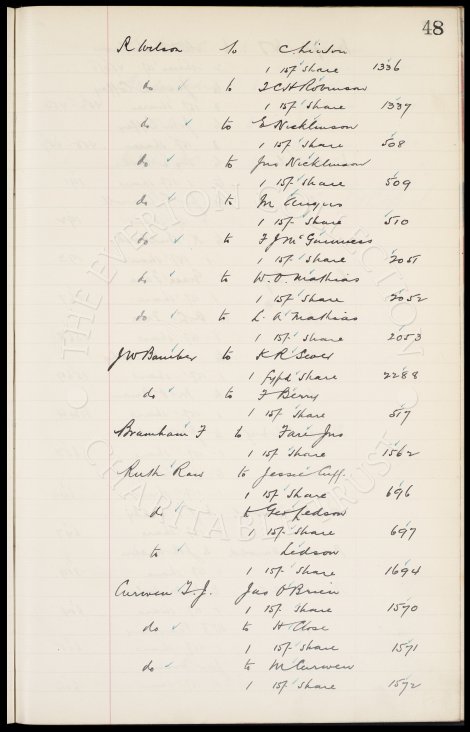 48
R Wilson to C. Linton
1 15/- Share 1336
do to J C H Robinson
1 15/- Share 1337
do to E Nicklinson
1 15/- Share 508
do to Jno Nicklinson
1 15/- Share 509
do to M Angus
1 15/- Share 510
do to F J McGuinness
1 15/- Share 2051
do to W. O. Mathias
1 15/- Share 2052
do to L. A Mathias
1 15/- Share 2053
JW Bamber to K R
1 fypd Share 2288
do to F Berry
1 15/- Share 517
Bramham F to Jno
1 15/- Share 1562
Ruth Raw to Jessie Cuff
1 15/- Share 696
do to Geo Ledson
1 15/- Share 697
to Ledson
1 15/- Share 1694
Curwen F. J. Jas O'Brien
1 15/- Share 1570
do to H Close
1 15/- Share 1571
do to M Curwen
1 15/- Share 1572
THE EVERTON COLLECTION
CHARITABLE TRUST